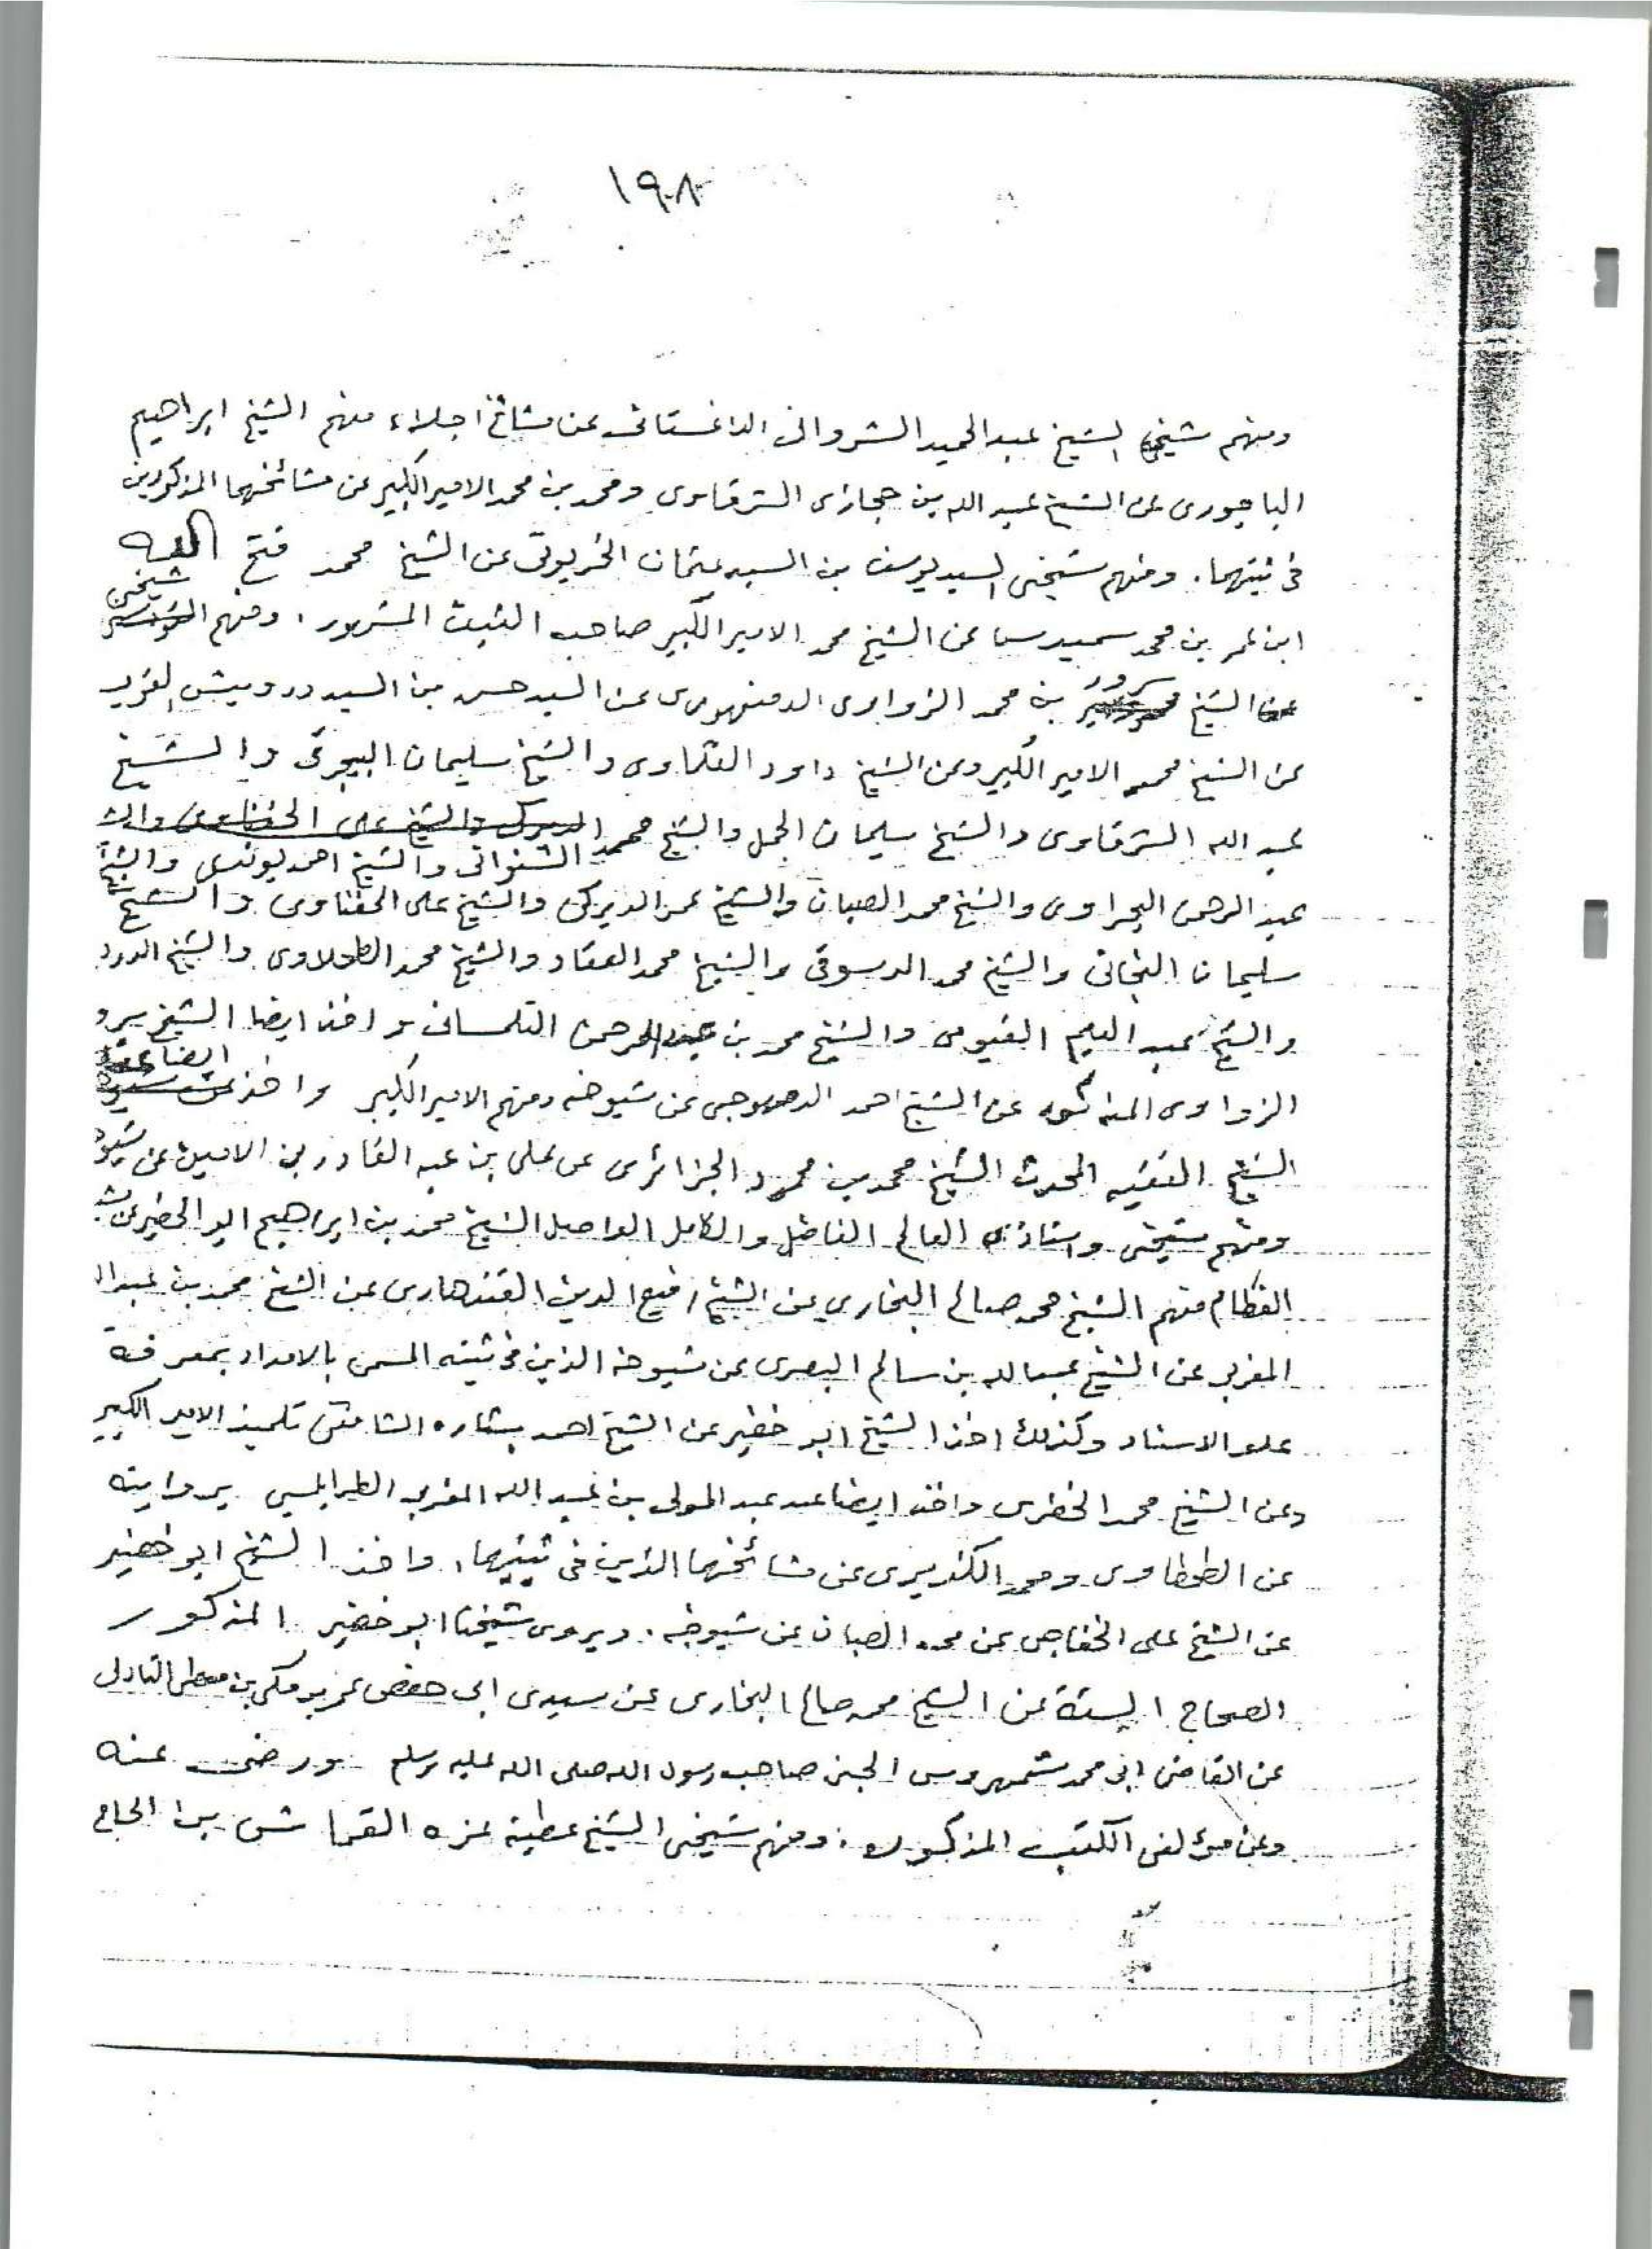 ١٩٨
ومنهم شيخي الشيخ عبد الحميد الشرواني الداغستاني عن مشائخ اجلاء منهم الشيخ ابراهيم
الباجوري عن الشيخ عبد الله بن حجازي الشرقاوي ومحمد بن محمد الامير الكبير عن مشائخهما المذكورين
في ثبتهما . ومنهم شيخي السيد يوسف بن السيد عثمان الخربوتي عن الشيخ محمد فتح الله
ابن عمر بن محمد سميدسا عن الشيخ محمد الامير الكبير صاحب الثبت المشهور . ومنهم شيخي
الشيخ سرور بن محمد الزواوي الدمنهوري عن السيد حسن بن السيد درويش
عن الشيخ محمد الامير الكبير وعن الشيخ داود القلعاوي والشيخ سليمان البيجرمي والشيخ
عبد الله الشرقاوي والشيخ سليمان الجمل والشيخ محمد الشنواني والشيخ احمد يونس والشيخ
عبد الرحمن البحراوي والشيخ محمد الصبان والشيخ عمر الديركي والشيخ على الحفناوي والشيخ
سليمان والشيخ محمد الدسوقي والشيخ محمد العقاد والشيخ محمد والشيخ
والشيخ عبد العليم الفيومي والشيخ محمد بن عبد الرحمن التلمساني واخذ ايضا الشيخ سرور
الزواوي المذكور عن الشيخ احمد الدمهوجي عن شيوخه ومنهم الامير الكبير واخذ ايضا
الشيخ الفقيه المحدث الشيخ محمد بن محمود الجزائري عن على بن عبد القادر بن الامين عن
ومنهم شيخي واستاذي العالم الفاضل والكامل الواصل الشيخ محمد بن ابراهيم ابو الخضير عن
منهم الشيخ محمد صالح البخاري عن الشيخ رفيع الدين القندهاري عن الشيخ محمد بن
المغربي عن الشيخ عبد الله بن سالم البصري عن شيوخه الذين في ثبته المسمى بالامداد بمعرفة
علو الاسناد وكذلك اخذ الشيخ ابو خضير عن الشيخ احمد بشاره تلميذ الامير الكبير
وعن الشيخ محمد الخضري واخذ ايضا عن عبد المولى بن عبد الله المغربي الطرابلسي بروايته
عن الطحطاوي ومحمد الكزبري عن مشائخهما الذين في ثبتيهما . واخذ الشيخ ابو خضير
عن الشيخ على الخفاجي عن محمد الصبان عن شيوخه . ويروي شيخنا ابو خضير المذكور
الصحاح الستة عن الشيخ محمد صالح البخاري عن سيدي ابي حفص عمر بن مكي بن معطي التادلي
عن القاضي ابي محمد شمهروس الجني صاحب رسول الله صلى الله عليه وسلم ورضي عنه
وعن مؤلفي الكتب المذكوره . ومنهم شيخي الشيخ عطية عزه القماش بن الحاج